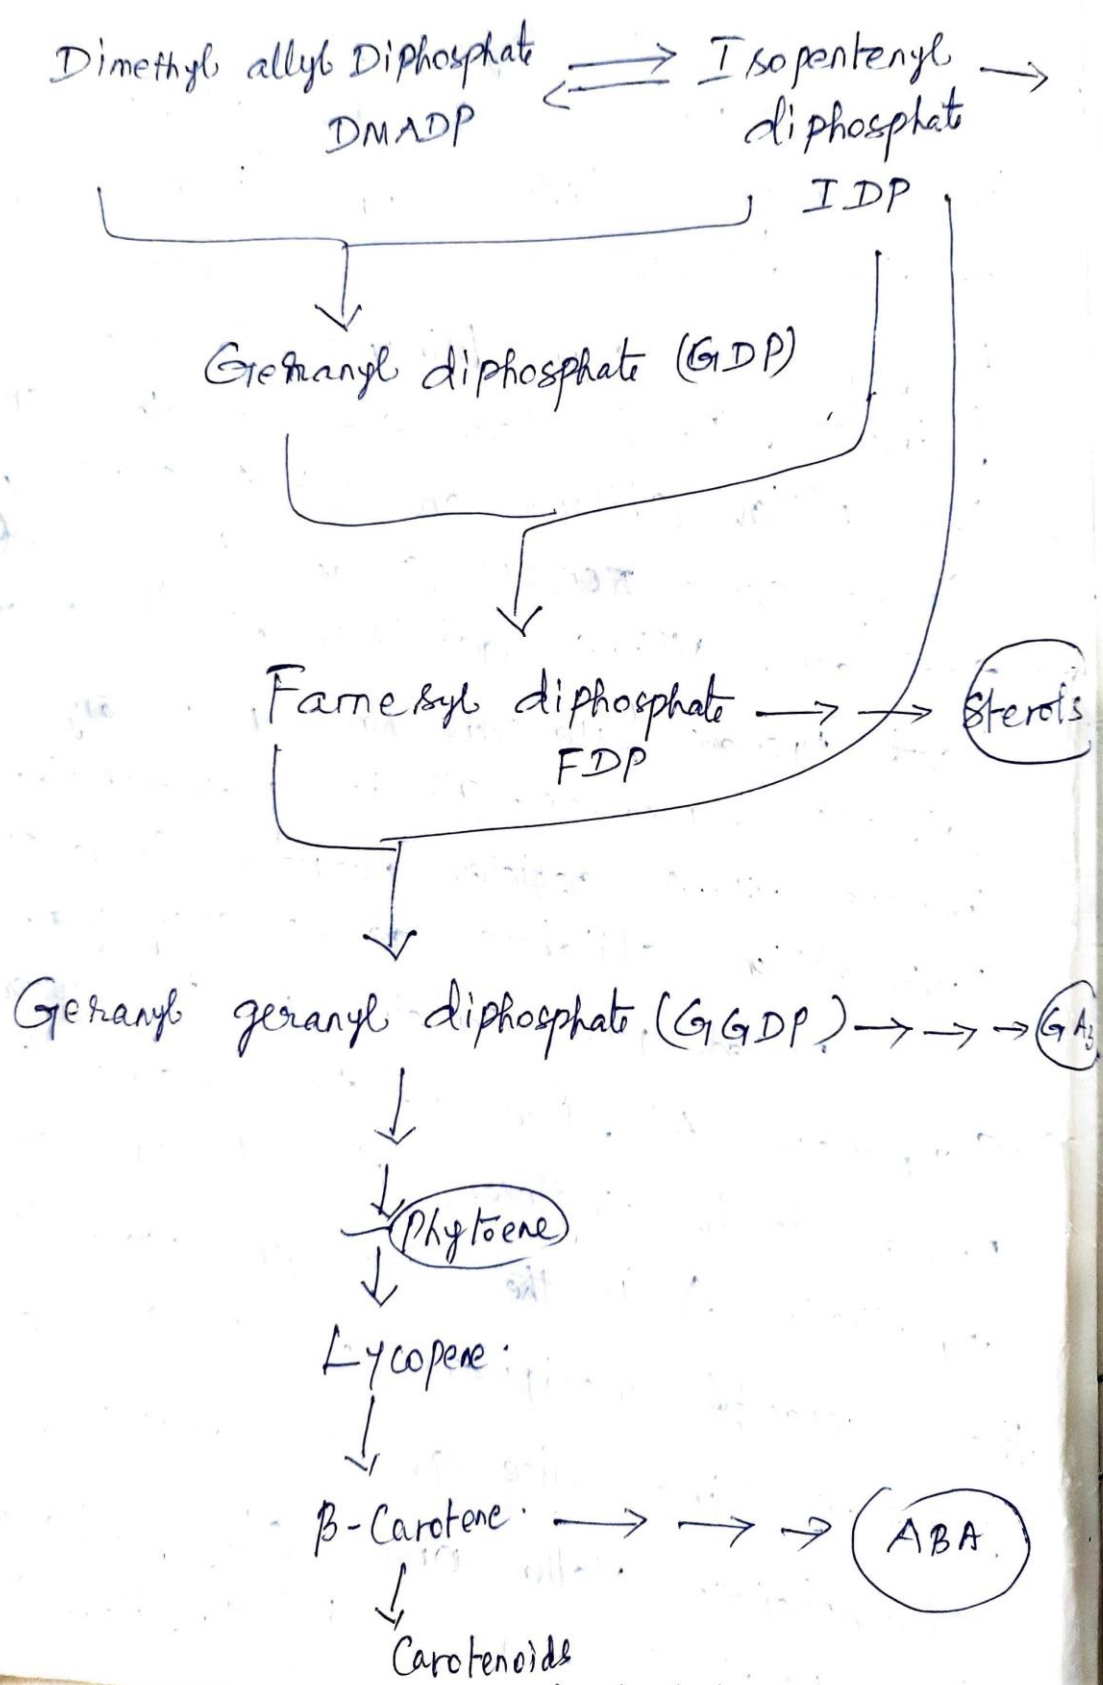 Dimethyl allyl Diphosphate ⇌ Isopentenyl →
diphosphate
DMADP
IDP
Geranyl diphosphate (GDP)
Farnesyl diphosphate → → Sterols
FDP
Geranyl geranyl diphosphate (GGDP) → → → GA3
Phytoene
Lycopene
β-Carotene → → → ABA
Carotenoids